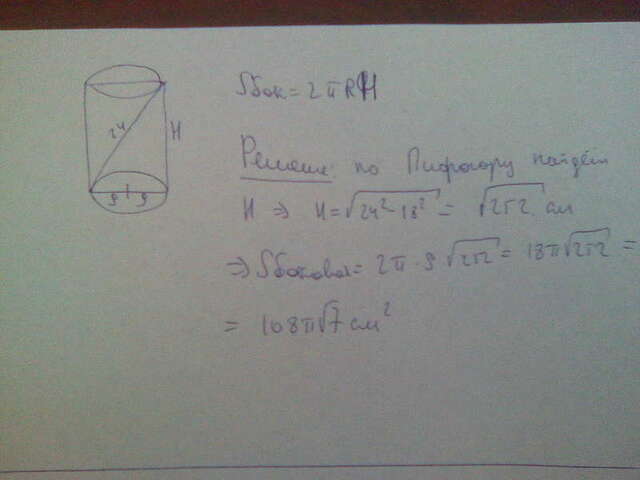 Sбок = 2πRH
24
H
9 9
Решение: по Пифагору найдём
H ⇒ H = √24² - 18² = √252 см
⇒ Sбоковая = 2π · 9 √252 = 18π√252 =
= 108π√7 см²